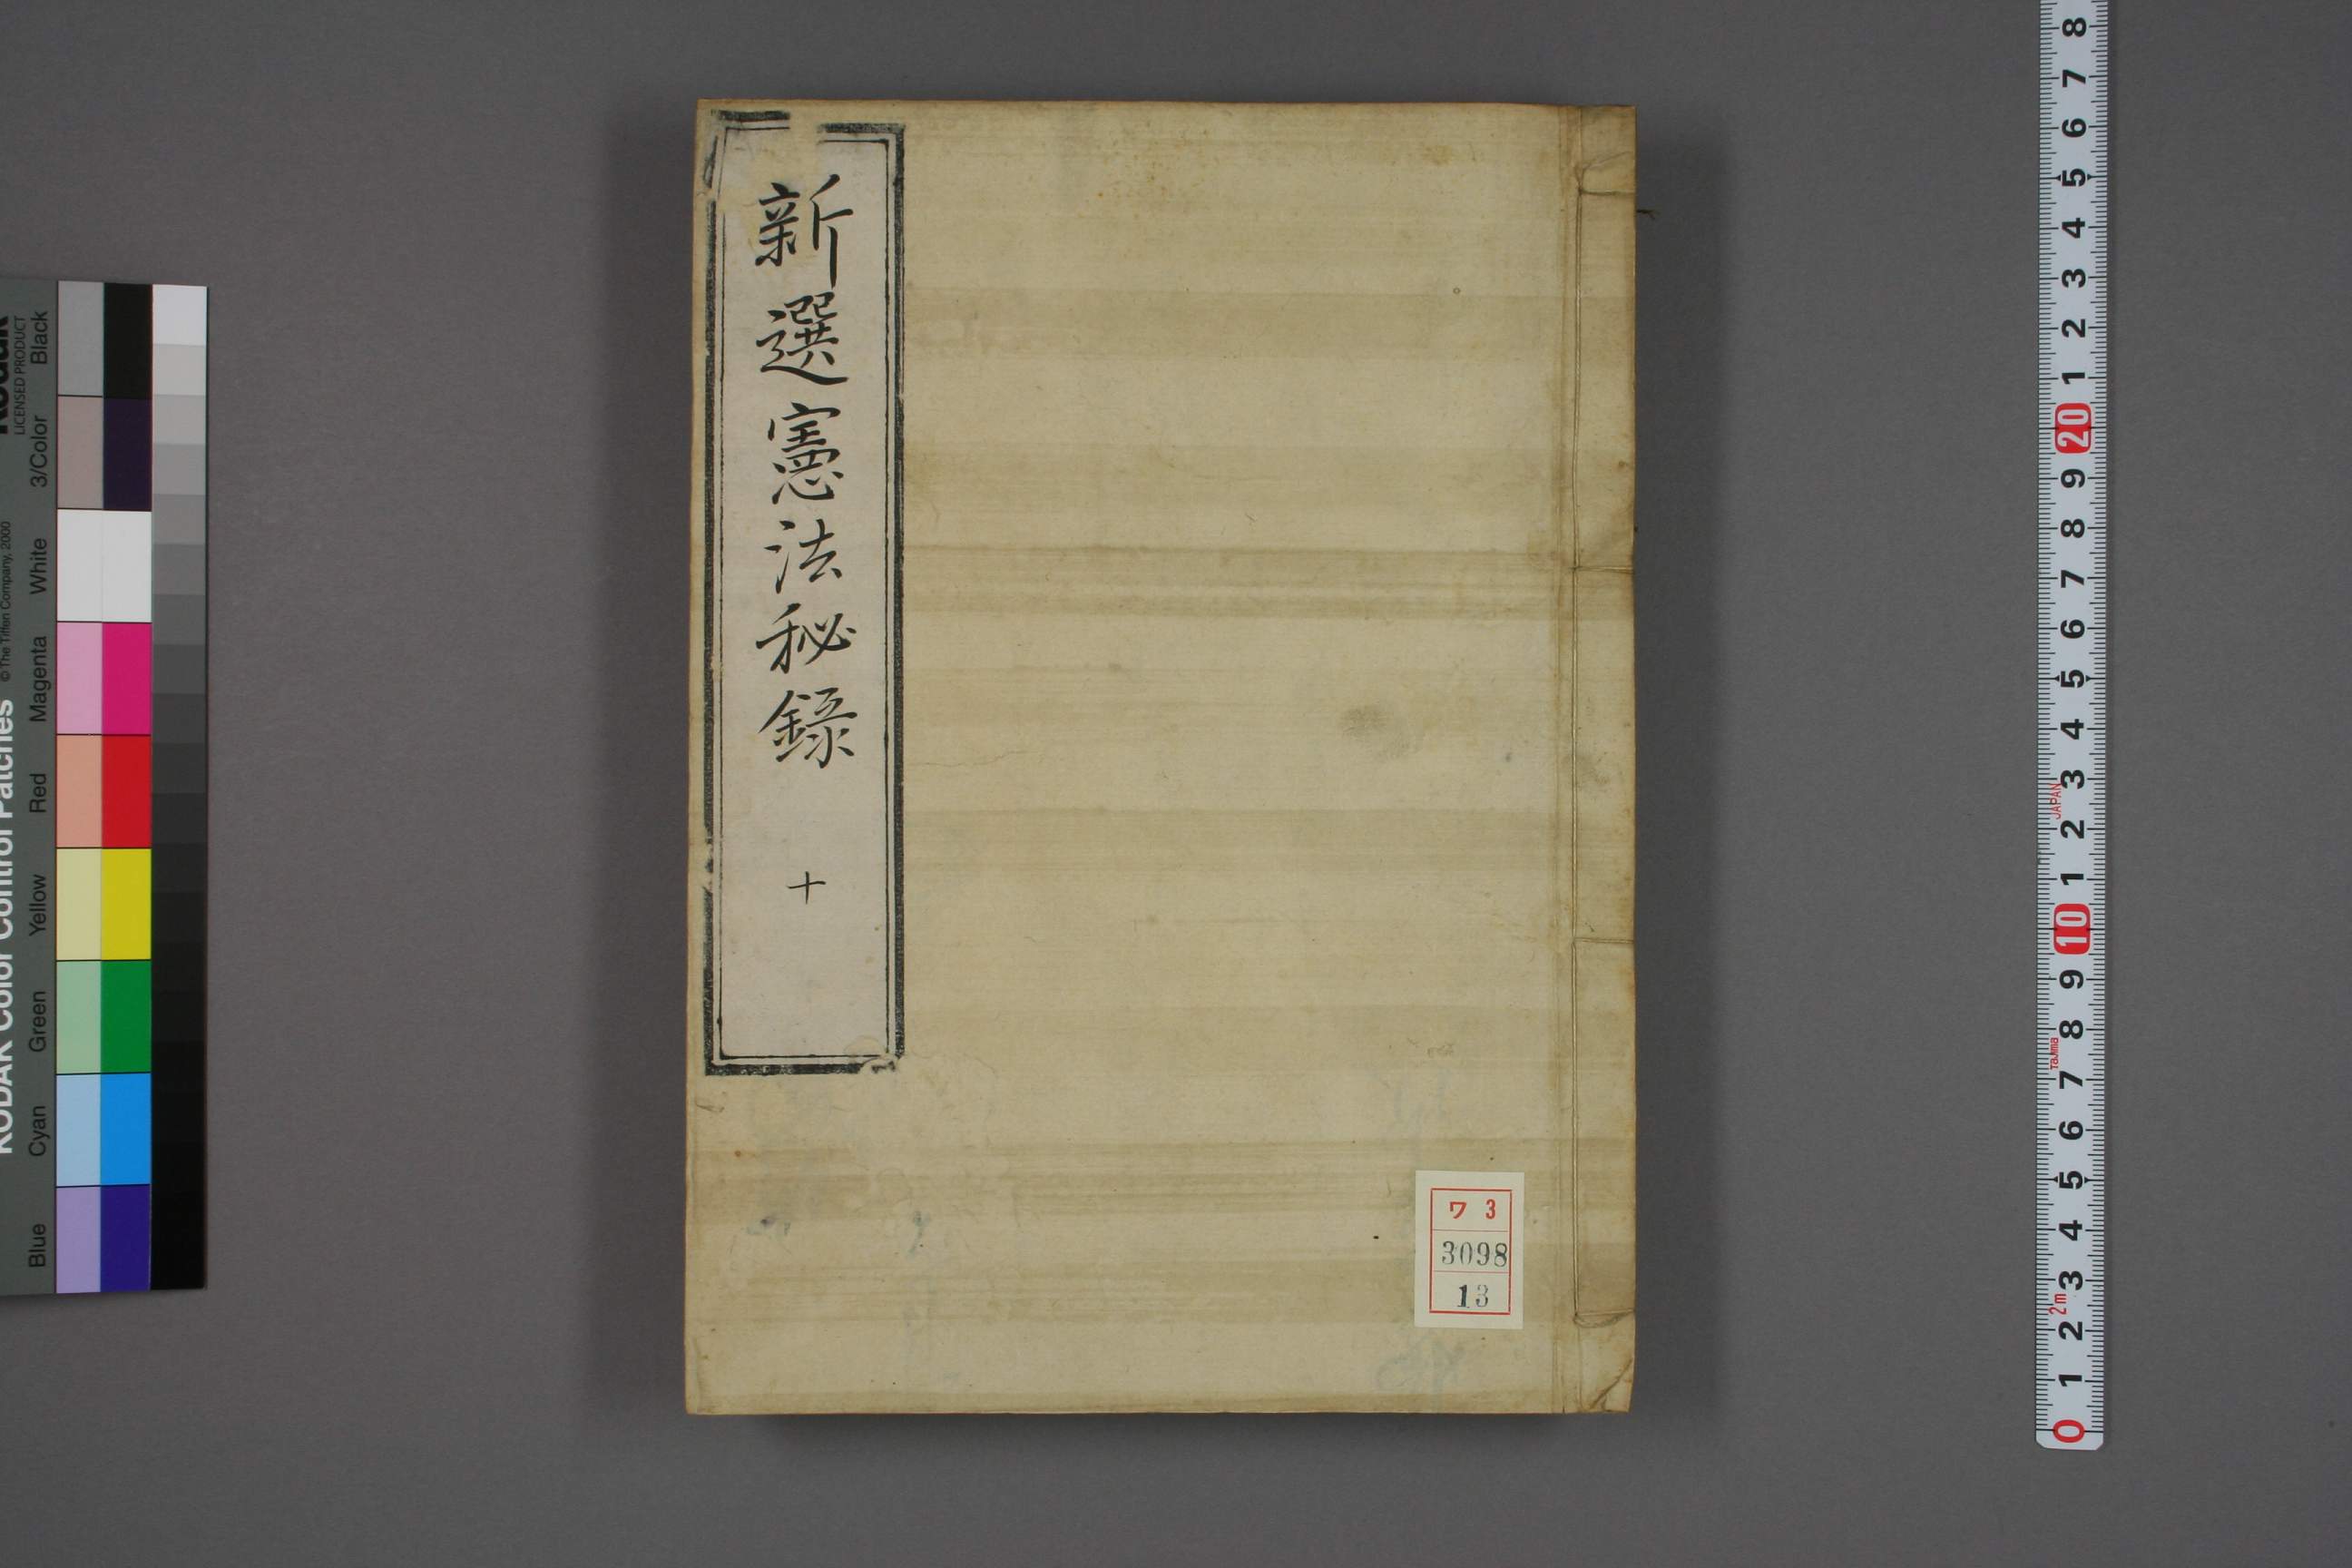 新選憲法秘錄
十
ワ 3
3098
13
KODAK Color Control Patches
© The Tiffen Company, 2000
LICENSED PRODUCT
Blue
Cyan
Green
Yellow
Red
Magenta
White
3/Color
Black
0 1 2 3 4 5 6 7 8 9 10 1 2 3 4 5 6 7 8 9 20 1 2 3 4 5 6 7 8
2m
Tajima
JAPAN